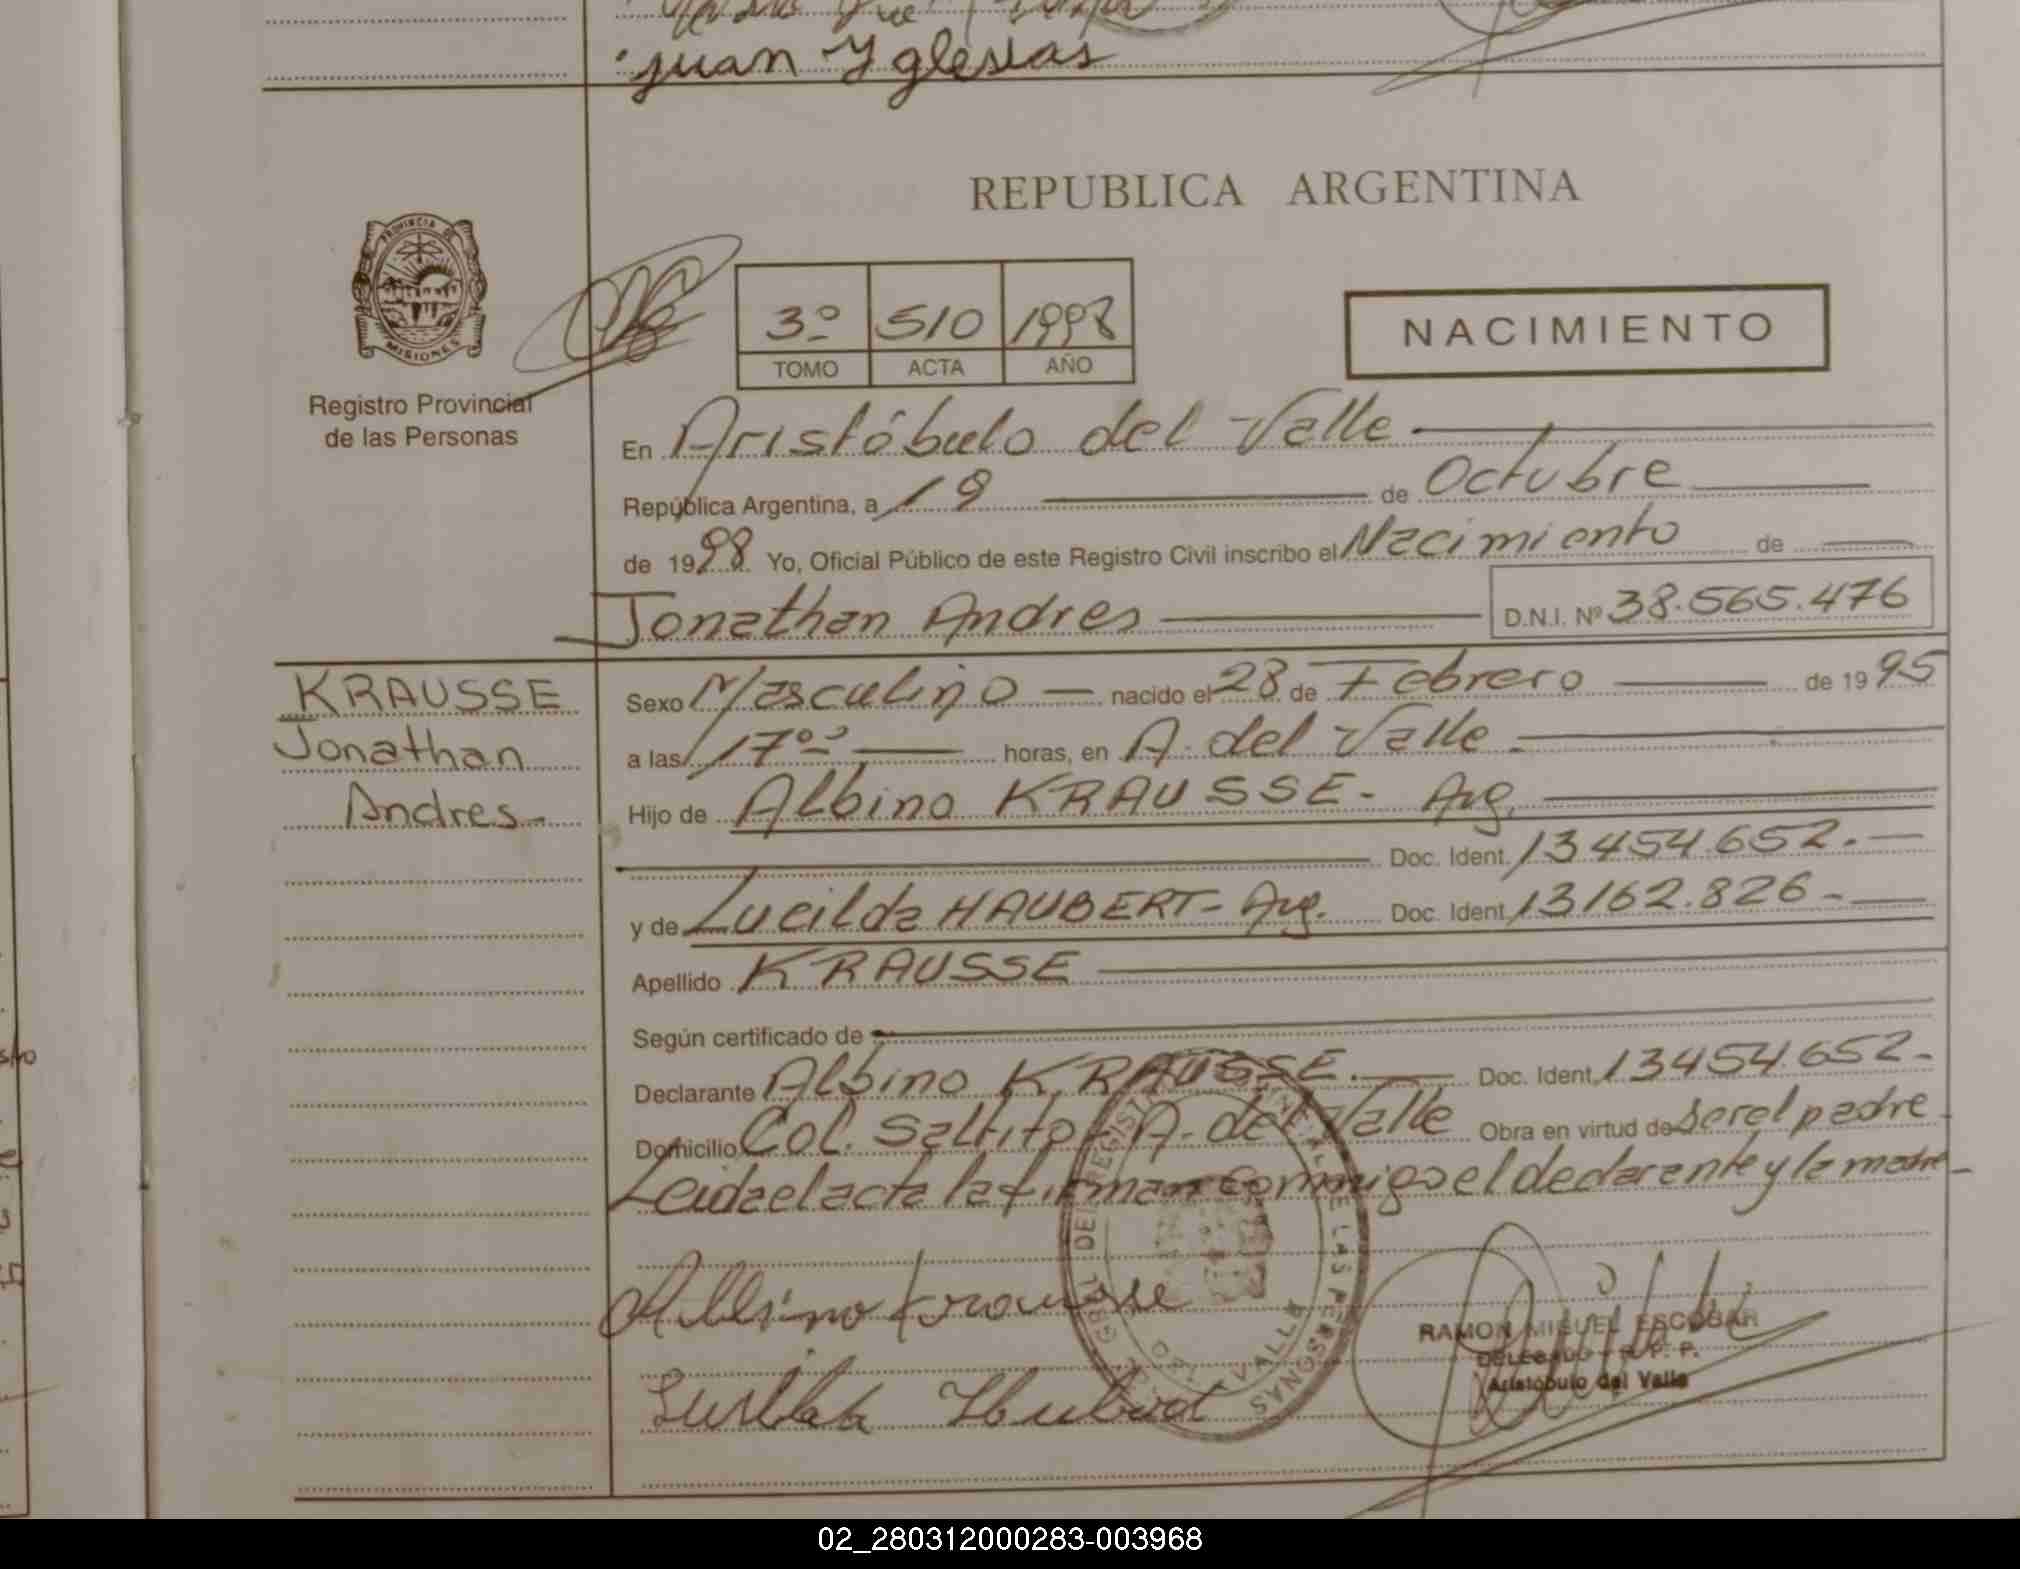 juan Yglesias
REPUBLICA ARGENTINA
PROVINCIA DE
MISIONES
Registro Provincial
de las Personas
3º 510 1998
TOMO ACTA AÑO
NACIMIENTO
En Aristóbulo del Valle
República Argentina, a 19 de Octubre
de 1998 Yo, Oficial Público de este Registro Civil inscribo el Nacimiento de
Jonathan Andres D.N.I. Nº 38.565.476
KRAUSSE
Jonathan
Andres
Sexo Masculino nacido el 28 de Febrero de 1995
a las 17 horas, en A. del Valle
Hijo de Albino KRAUSSE - Arg.
Doc. Ident. 13454.652.
y de Lucilda HAUBERT - Arg. Doc. Ident. 13162.826-
Apellido KRAUSSE
Según certificado de
Declarante Albino KRAUSSE. Doc. Ident. 13454.652-
Domicilio Col. Saltito A. del Valle Obra en virtud de ser el padre
Leida el acta la firman conmigo el declarante y la madre
Albino Krausse
RAMON MIGUEL ESCOBAR
DELEGADO R. P. P.
Aristóbulo del Valle
02_280312000283-003968